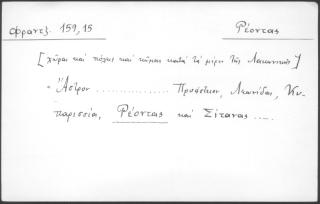 Φραντζ. 159,15 Ρέοντας
[χῶραι καὶ πόλεις καὶ κῶμαι κατὰ τὰ μέρη τῆς Λακωνικῆς]
"Ἄστρον ................ Προάστειον, Λεωνίδας, Κυ-
παρισσία, Ρέοντας καὶ Σίτανας .....